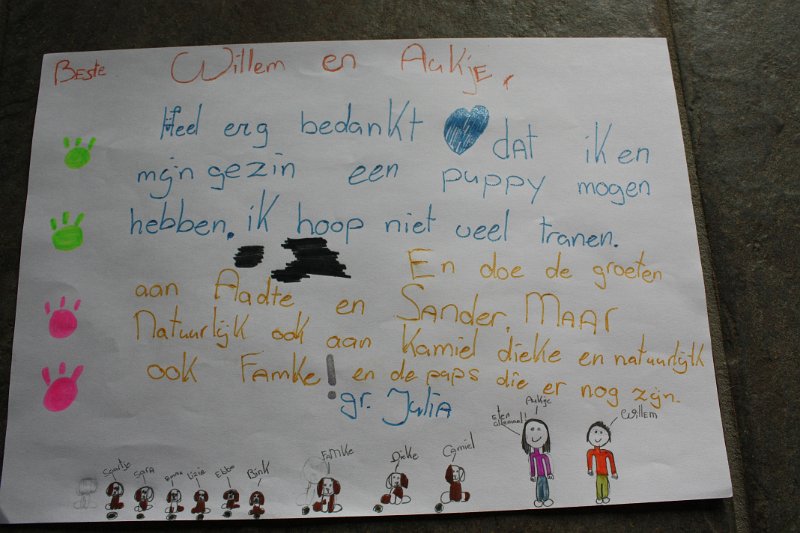 Beste Willem en Aukje,
Heel erg bedankt dat ik en
mijn gezin een puppy mogen
hebben. ik hoop niet veel tranen.
En doe de groeten
aan Aadte en Sander. Maar
Natuurlijk ook aan Kamiel dieke en natuurlijk
ook Famke! en de paps die er nog zijn.
gr. Julia
Aukje
Willem
Famke Dieke Camiel
Sara Ebba Bink